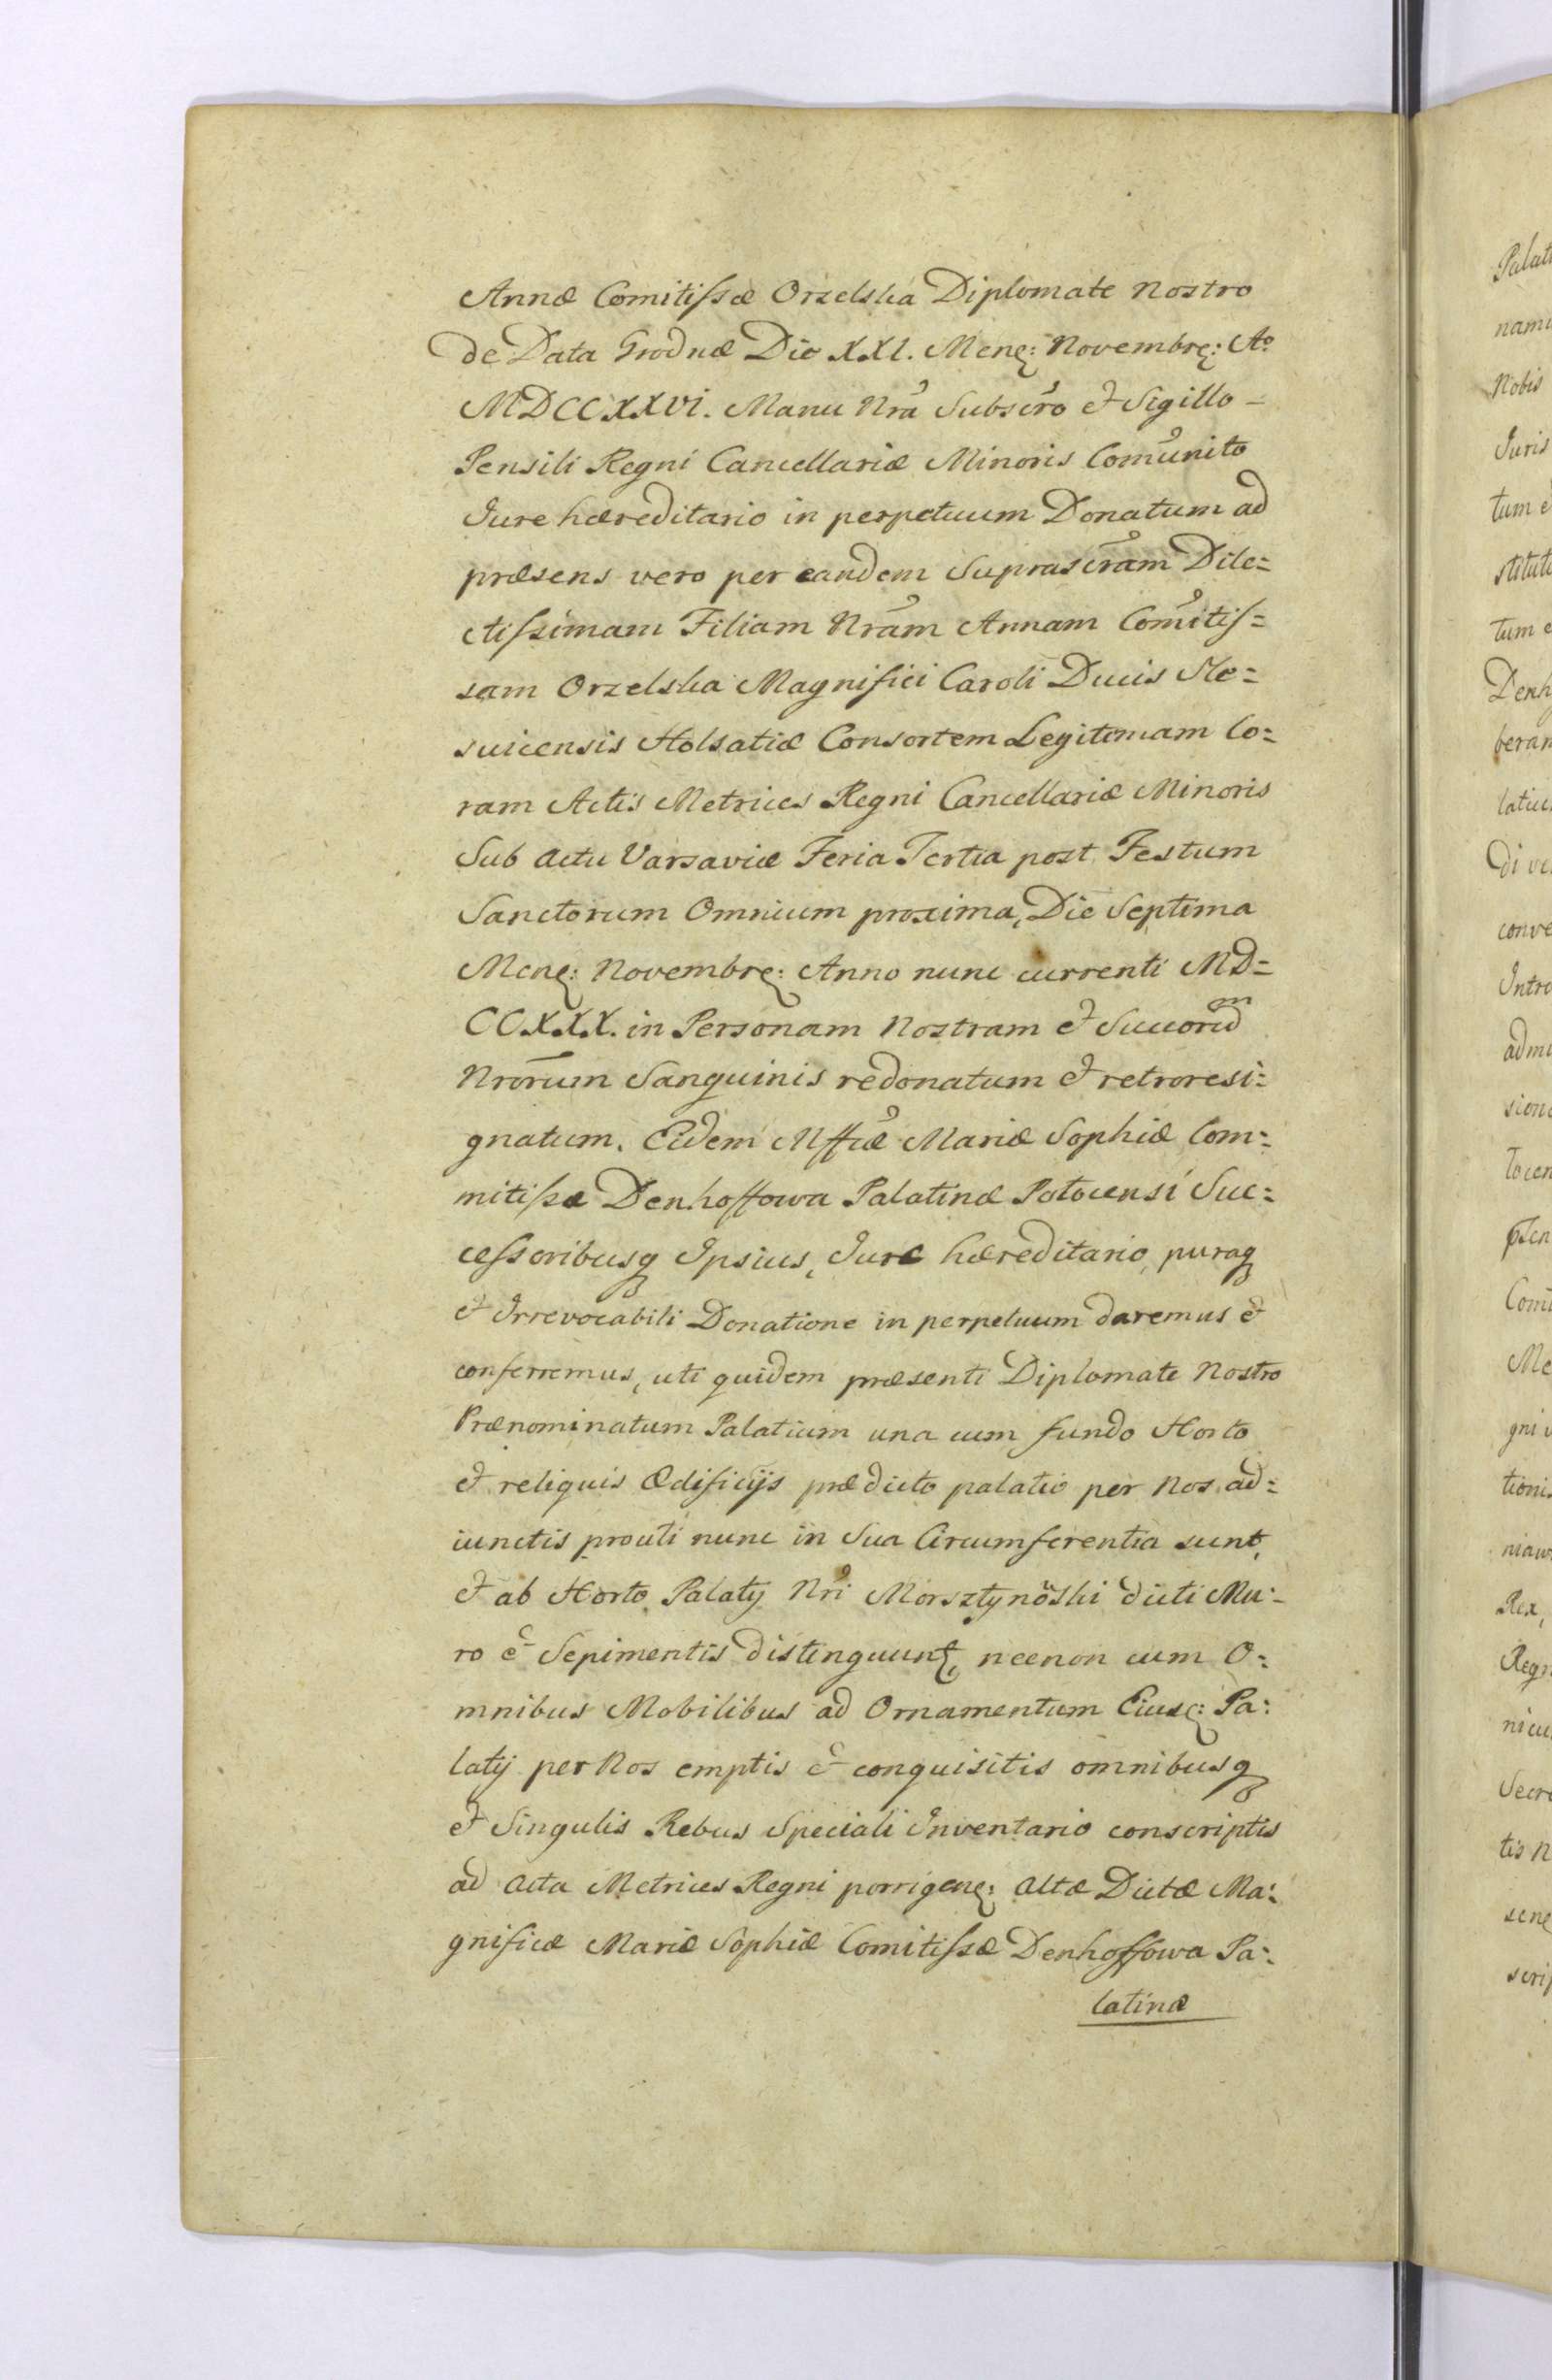 Annæ Comitissæ Orzelska Diplomate Nostro
de Data Grodnæ Die XXI. Menꝭ: Novembrꝭ: Aº
MDCCXXVI. Manu Nrã Subscr̃o et Sigillo -
Pensili Regni Cancellariæ Minoris Com̃unito
Jure hæreditario in perpetuum Donatum ad
præsens vero per eandem Suprascr̃am Dile=
ctissimam Filiam Nrãm Annam Com̃itis=
sam Orzelska Magnifici Caroli Ducis Sle=
suicensis Holsatiæ Consortem Legitimam Co=
ram Actis Metrices Regni Cancellariæ Minoris
Sub Actu Varsaviæ Feria Tertia post Festum
Sanctorum Omnium proxima, Die Septima
Menꝭ: Novembrꝭ: Anno nunc currenti MD=
CCXXX. in Personam Nostram et Succorũm
Nrõrum Sanguinis redonatum et retroresi=
gnatum. Eidem Mffcæ Mariæ Sophiæ Com=
mitissæ Denhoffowa Palatinæ Potocensi Suc=
cessoribusq Ipsius, Jure hæreditario, puraq
et Irrevocabili Donatione in perpetuum daremus et
conferremus, uti quidem præsenti Diplomate Nostro
Prænominatum Palatium una cum fundo Horto
et reliquis Ædificijs prædicto palatio per Nos ad=
iunctis prouti nunc in Sua Circumferentia sunt,
et ab Horto Palatij Nrĩ Morsztynõski dicti Mu=
ro et Sepimentis distinguunt, necnon cum O=
mnibus Mobilibus ad Ornamentum Eiusꝭ: Pa=
latij per Nos emptis et conquisitis omnibusq
et Singulis Rebus Speciali Inventario conscriptis
ad Acta Metrices Regni porrigenꝭ: altæ Dictæ Ma=
gnificæ Mariæ Sophiæ Comitissæ Denhoffowa Pa=
latinæ